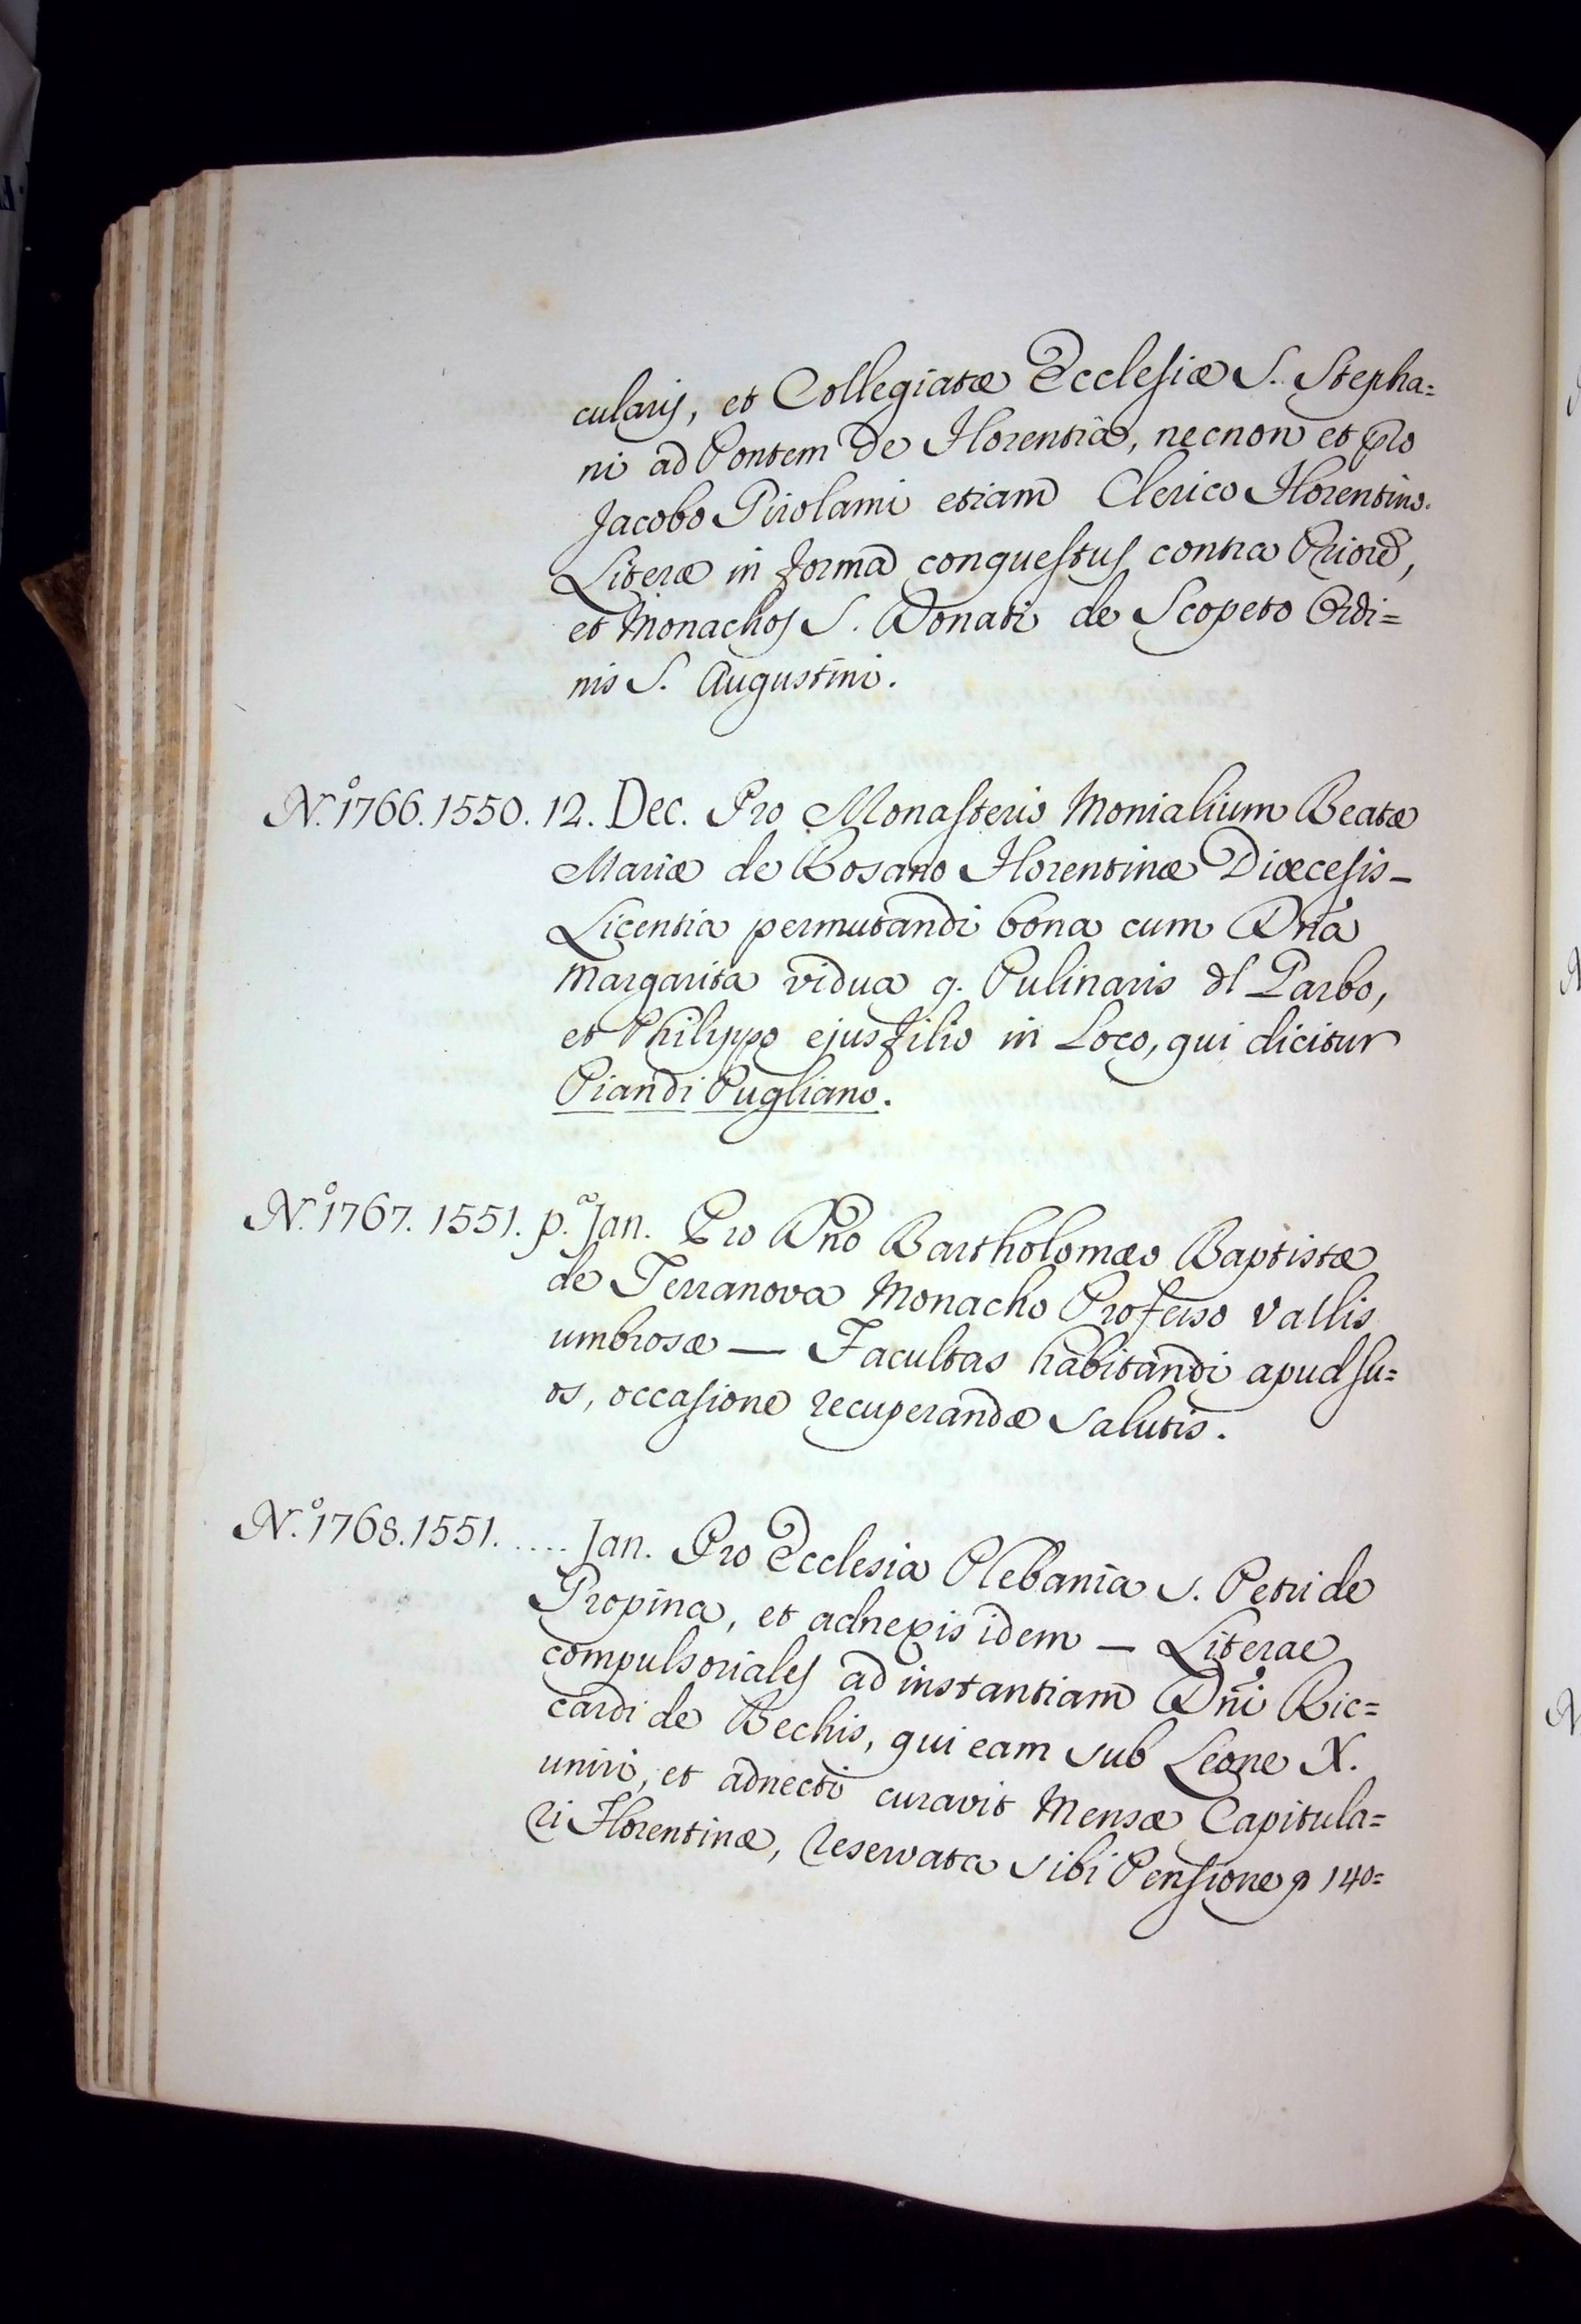 cularis, et Collegiatæ Ecclesiæ S. Stepha=
ni ad Pontem de Florentia, necnon et pro
Jacobo Girolami etiam Clerico Florentino.
Literæ in forma conquestus contra Priorē,
et Monachos S. Donati de Scopeto Ordi=
nis S. Augustini.
N.º 1766. 1550. 12. Dec. Pro Monasterio Monialium Beatæ
Mariæ de Rosano Florentinæ Diœcesis —
Licentia permutandi bona cum Dn̄a
Margarita vidua q. Pulinaris dl Garbo,
et Philippo ejus filio in Loco, qui dicitur
Piandi Pugliano.
N.º 1767. 1551. p.ª Jan. Pro Dn̄o Bartholomæo Baptistæ
de Terranova Monacho Professo Vallis
umbrosæ — Facultas habitandi apud su=
os, occasione recuperandæ salutis.
N.º 1768. 1551. .... Jan. Pro Ecclesia Plebania S. Petri de
Gropina, et adnexis idem — Literae
compulsoriales ad instantiam Dn̄i Ric=
cardi de Bechis, qui eam sub Leone X.
uniri, et adnecti curavit Mensæ Capitula=
ri Florentinæ, reservata sibi Pensione 140=